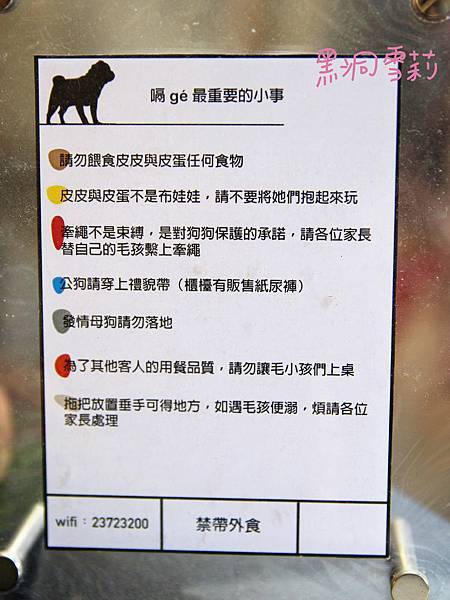 黑洞雪莉
嗝 gé 最重要的小事
請勿餵食皮皮與皮蛋任何食物
皮皮與皮蛋不是布娃娃，請不要將她們抱起來玩
牽繩不是束縛，是對狗狗保護的承諾，請各位家長
替自己的毛孩繫上牽繩
公狗請穿上禮貌帶（櫃檯有販售紙尿褲）
發情母狗請勿落地
為了其他客人的用餐品質，請勿讓毛小孩們上桌
拖把放置垂手可得地方，如遇毛孩便溺，煩請各位
家長處理
wifi：23723200
禁帶外食